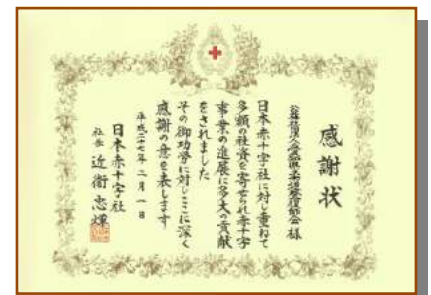 感謝状
公益社団法人 様
日本赤十字社に対し重ねて
多額の社資を寄せられ赤十字
事業の進展に多大の貢献
をされました
その御功労に対しここに深く
感謝の意を表します
平成二十七年二月一日
日本赤十字社
社長 近衞忠煇